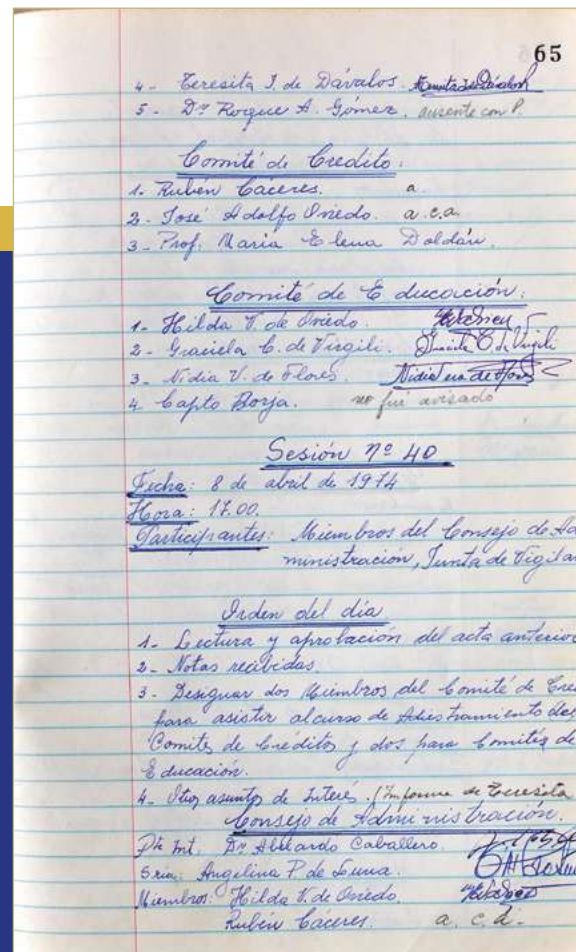 65
4- Teresita I. de Dávalos.
5- Dr Roque A. Gómez. ausente con P.
Comité de Credito.
1. Rubén Cáceres. a.
2- José Adolfo Oviedo. a.c.a.
3- Prof. María Elena Doldán.
Comité de Educación:
1- Hilda V. de Oviedo.
2- Graciela C. de Virgili. Graciela C. de Virgili
3- Nidia V. de Flores. Nidia Vera de Flores
4 Capto Borja. no fué avisado
Sesión nº 40
Fecha: 8 de abril de 1974
Hora: 17.00.
Participantes: Miembros del Consejo de Ad
ministración, Junta de Vigilan
Orden del día
1- Lectura y aprobación del acta anterio
2- Notas recibidas
3- Designar dos Miembros del Comité de Cre
para asistir al curso de Adiestramiento de
Comités de Créditos y dos para Comités de
Educación.
4- Otros asuntos de Interés. (Informe de Teresita
Consejo de Administración.
Pte Int. Dr Abelardo Caballero.
Sria: Angelina P. de Luna.
Miembros: Hilda V. de Oviedo.
Rubén Cáceres. a. c. a.